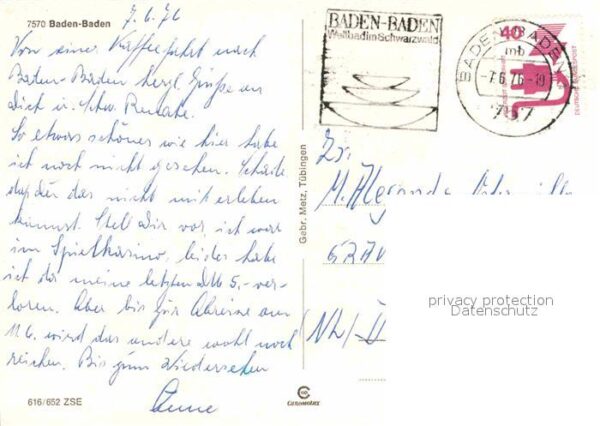 7570 Baden-Baden
7.6.76
Von einer Kaffeefahrt nach
Baden-Baden herzl. Grüße an
Dich u. Schw. Renate.
So etwas schönes wie hier habe
ich noch nicht gesehen. Schade
daß Du das nicht miterleben
kannst. Stell Dir vor, ich war
im Spielkasino, leider habe
ich da meine letzten DM 5,- ver-
loren. Aber bis zur Abreise am
11.6. wird das andere wohl noch
reichen. Bis zum Wiedersehen
616/652 ZSE
Gebr. Metz, Tübingen
BADEN-BADEN
Weltbad im Schwarzwald
BADEN-BADEN
mb
-7.6.76-19
757
40
DEUTSCHE BUNDESPOST
M.
privacy protection
Datenschutz